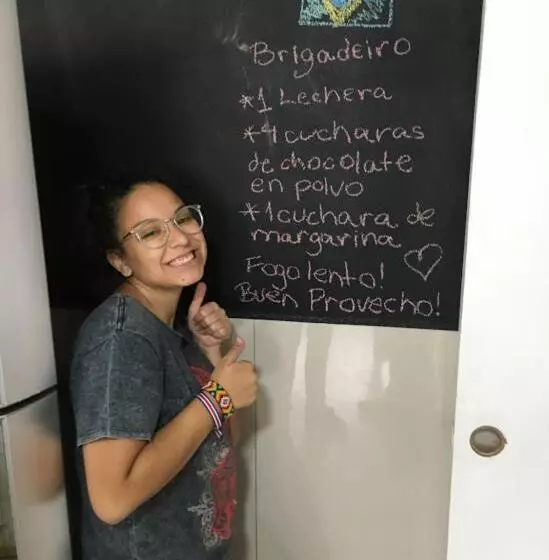 Brigadeiro
*1 Lechera
*4 cucharas
de chocolate
en polvo
*1 cuchara de
margarina
Fogo lento!
Buen Provecho!